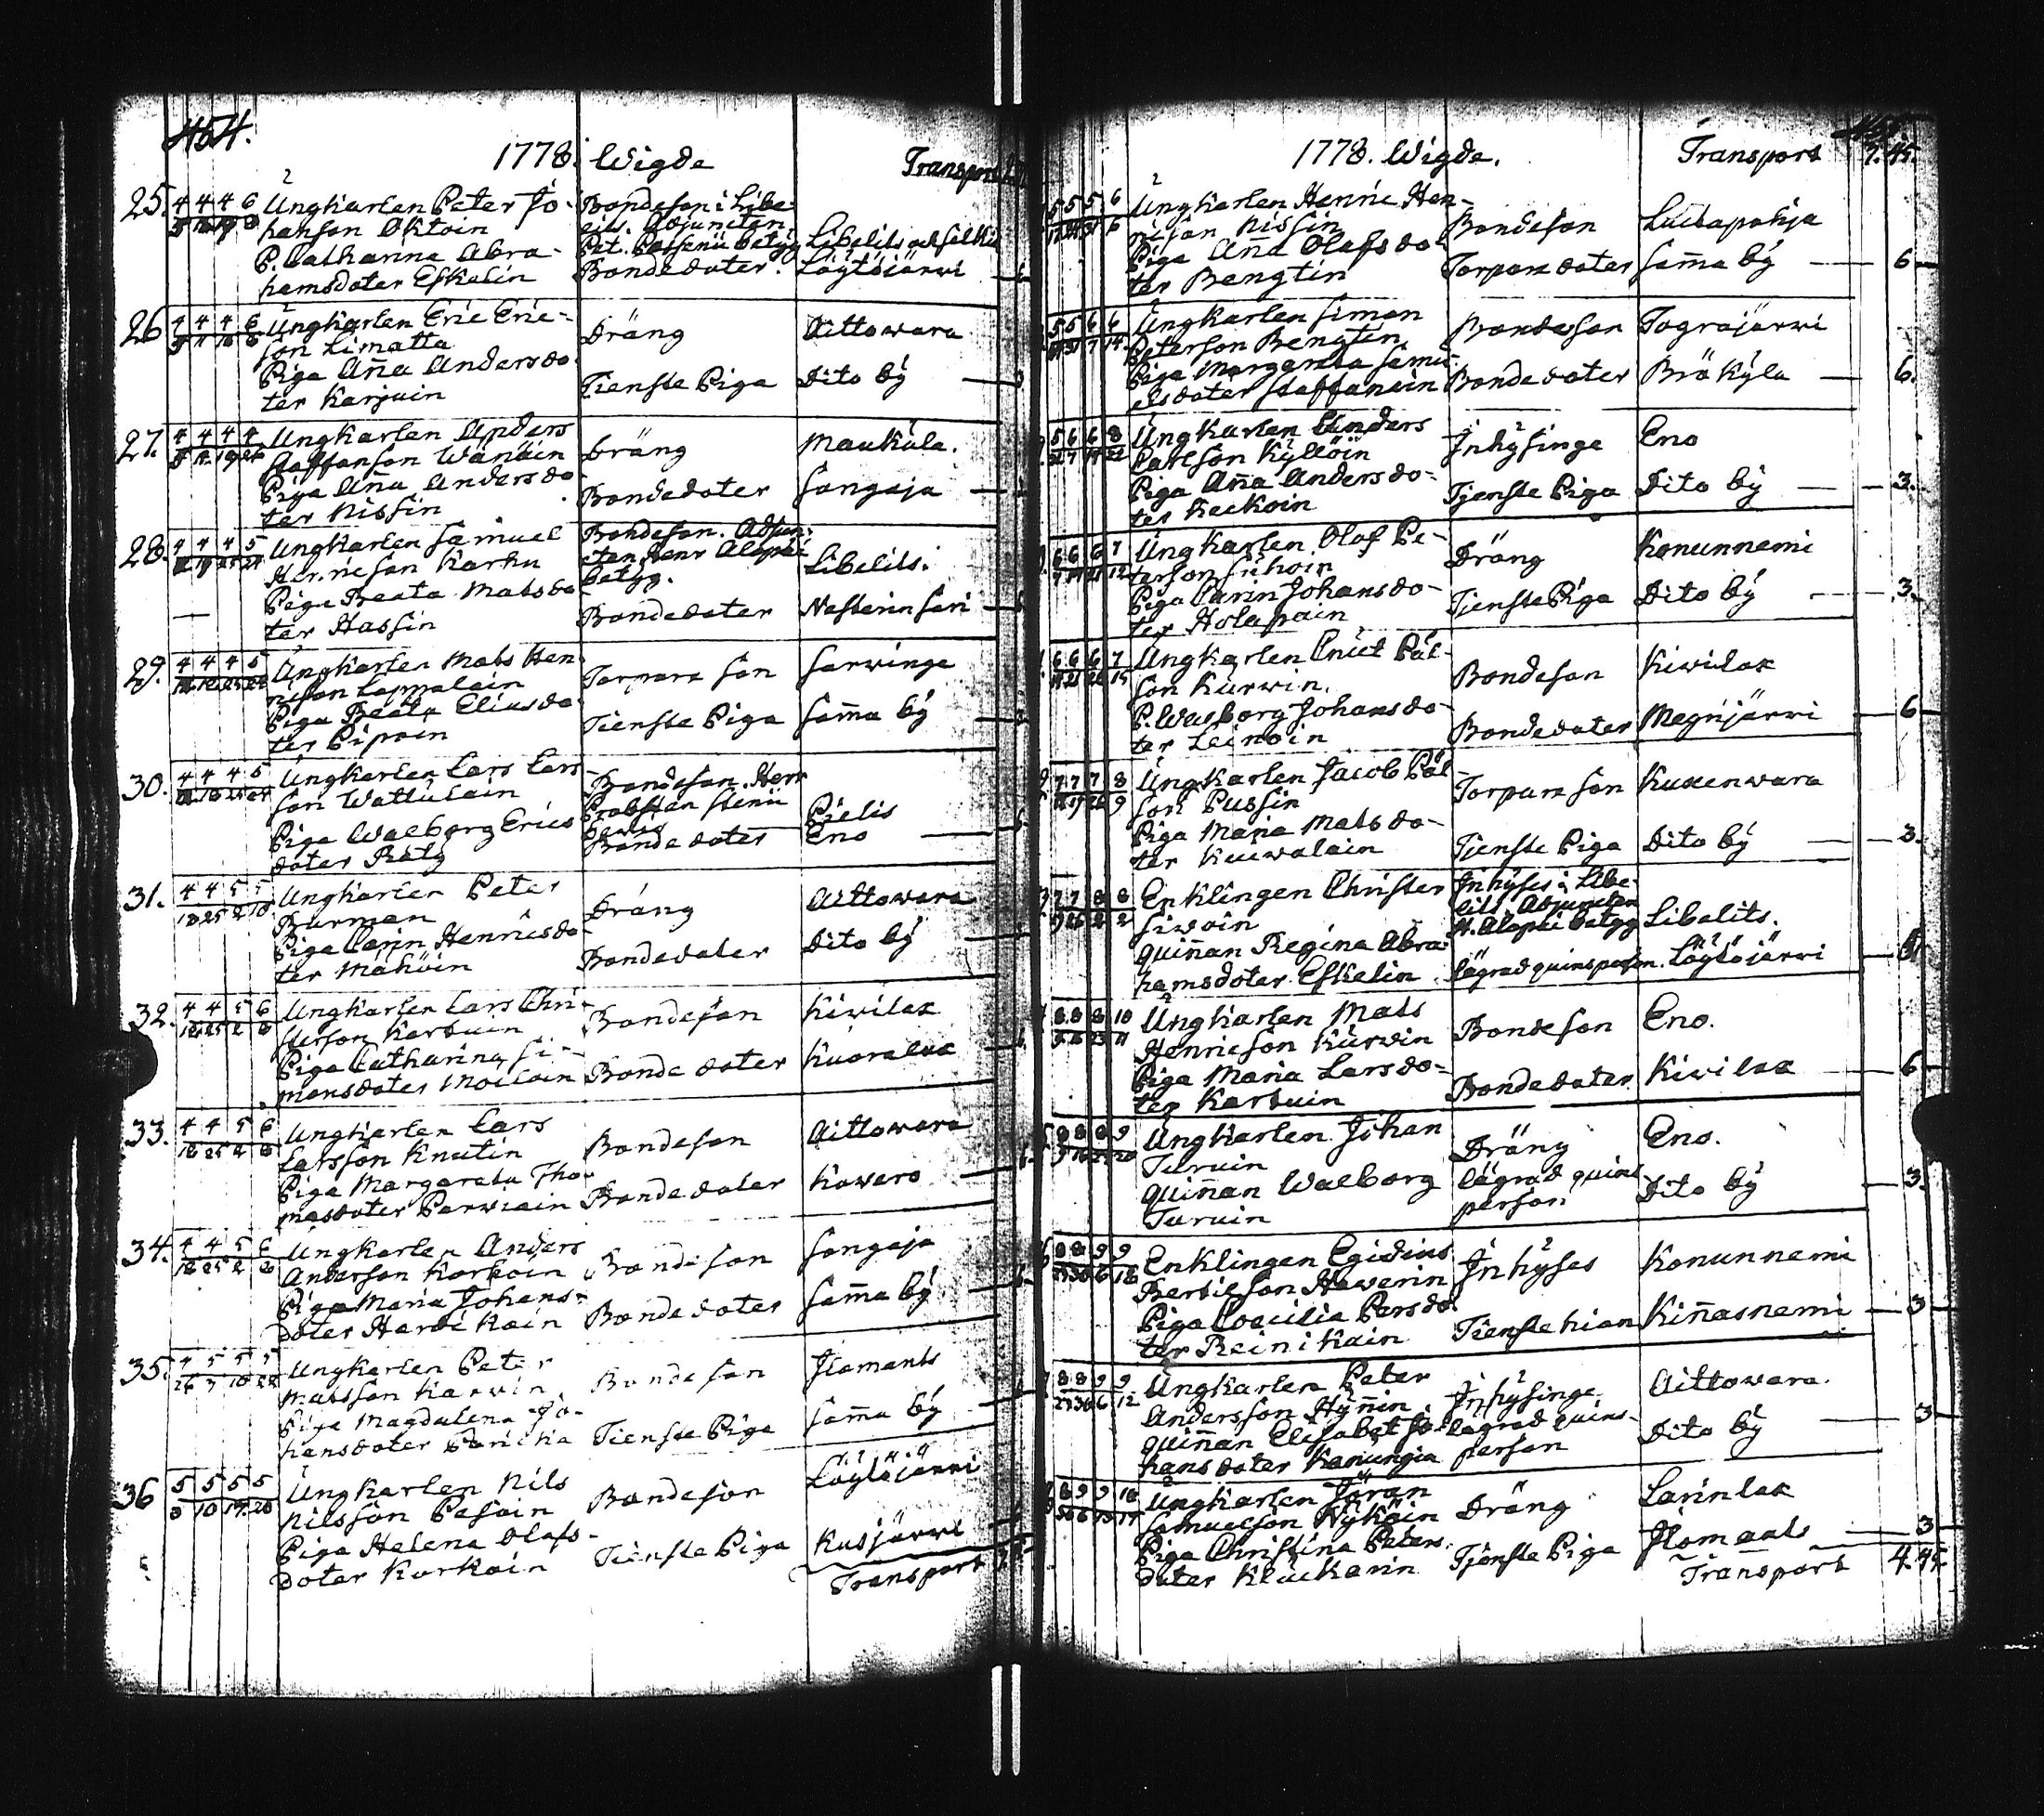 464.
1778. Wigde
Transport
25. 4 4 4 6
Ungkarlen Peter Jo-
hanson Oktoin
P. Catharina Abra-
hamsdoter Eskelin
Bondeson i Libe-
lits. Adjuncten
Bondedoter.
Libelits
Löytöjärvi
26 4 4 4 6
Ungkarlen Eric Eric-
son Limatta
Piga Aña Andersdo-
ter Karjain
Dräng
Tienste Piga
Aittowara
Dito by
27. 4 4 4 4
Ungkarlen Anders
Staffanson Wänäin
Piga Aña Andersdo-
ter Nissin
Dräng
Bondedoter
Maukula.
Sangaja
28. 4 4 4 5
Ungkarlen Samuel
Henricson Karhu
Piga Beata Matsdo-
ter Hassin
Bondeson. Adjun-
cten Henr Alopæi
betyg.
Bondedoter
Libelits.
Nesterinsari
29. 4 4 4 5
Ungkarlen Mats Hen-
ricson Lappalain
Piga Beata Eliasdo-
ter Pipoin
Torpare son
Tienste Piga
Sarwinge
Sam̃a by
30. 4 4 4 5
Ungkarlen Lars Lars-
son Wattulain
Piga Walborg Erics
doter Räty
Bondeson. Herr
Probsten Stenii
betyg
Bonde doter
Pielis
Eno
31. 4 4 5 5
18 25 2 10
Ungkarlen Peter
Burman
Piga Carin Henricsdo-
ter Mähöin
Dräng
Bondedoter
Aittowara
Dito by
32. 4 4 5 6
18 25 2 8
Ungkarlen Lars Chri-
sterson Karvuin
Piga Catharina Si-
monsdoter Moiloin
Bondeson
Bonde doter
Kivilax
Kuoralax
33. 4 4 5 6
18 25 2 8
Ungkarlen Lars
Larsson Knutin
Piga Margareta Tho-
masdoter Parwiain
Bondeson
Bonde doter
Aittowara
Kowero
34. 4 4 5 6
18 25 2
Ungkarlen Anders
Anderson Korkoin
Piga Maria Johans-
doter Hardikain
Bondeson
Bonde doter
Sangaja
Sam̃a by
35. 4 5 5 5
26 3 10 22
Ungkarlen Peter
Matsson Karwin
Piga Magdalena Jo-
hansdoter
Bondeson
Tienste Piga
Ilomants
Sam̃a by
36 5 5 5 5
3 10 17 20
Ungkarlen Nils
Nilsson Pesoin
Piga Helena Olofs-
doter Korkoin
Bondeson
Tienste Piga
Löytöjärvi
Kusjärvi
Transport
1778. Wigde.
Transport 7. 45.
5 5 5 6
Ungkarlen Henric Hen-
ricson Nissin
Piga Aña Olofsdo-
ter Bengtin
Bondeson
Torpare doter
Luttapohja
Sam̃a by 6
5 5 6 6
Ungkarlen Simon
Peterson Bengtin
Piga Margareta Samu-
elsdoter Staffanain
Bondeson
Bonde doter
Tograjärwi
Bräkylä 6.
5 6 6 8
Ungkarlen Anders
Carlson Kyllöin
Piga Aña Andersdo-
ter Keckoin
Inhysinge
Tjenste Piga
Eno
Dito by 3.
6 6 6 7
7 14 21 12
Ungkarlen Olof Pe-
terson Sihvoin
Piga Carin Johansdo-
ter Holapain
Dräng
Tjenste Piga
Konunnemi
Dito by 3.
6 6 6 7
14 21 26 15
Ungkarlen Cnut Pål-
son Kurwin.
P. Walborg Johansdo-
ter Leinoin
Bondeson
Bondedoter
Kivilax
Megrijärwi 6
7 7 7 8
Ungkarlen Jacob Pål
son Pussin
Piga Maria Matsdo-
ter Keuwalain
Torpare son
Tjenste Piga
Kuxenwara
Dito by 3.
7 7 8 8
19 26 2 2
Enklingen Christer
Siwoin
Quin̄an Regina Abra-
hamsdoter Eskelin
Inhyses i Libe-
lits, Adjuncten
H. Alopæi betyg
lägrad quinsperson.
Libelits.
Löytöjärvi
8 8 8 10
Ungkarlen Mats
Henricson Kurwin
Piga Maria Larsdo-
ter Karvuin
Bondeson
Bondedoter
Eno.
Kivilax 6
8 8 8 9
Ungkarlen Johan
Turuin
Quin̄an Walborg
Turuin
Dräng
lägrad quins
person
Eno.
Dito by 3.
8 8 9 9
23 30 6 18
Enklingen Egidius
Bertilson Hewerin
Piga Coecilia Persdo-
ter Reinikain
Inhyses
Tienstehion
Konunnemi
Kiñasnemi 3
8 8 9 9
23 30 6 12
Ungkarlen Peter
Andersson Hyñin
Quin̄an Elisabet Jo-
hansdoter Kamungia
Inhysinge
lägrad quins-
person
Aittowara.
Dito by 3
8 9 9 10
Ungkarlen Jöran
Samuelson Nykäin
Piga Christina Peters-
doter Kluckarin
Dräng
Tjenste Piga
Larinlax
Ilomants 3
Transport 4. 45.